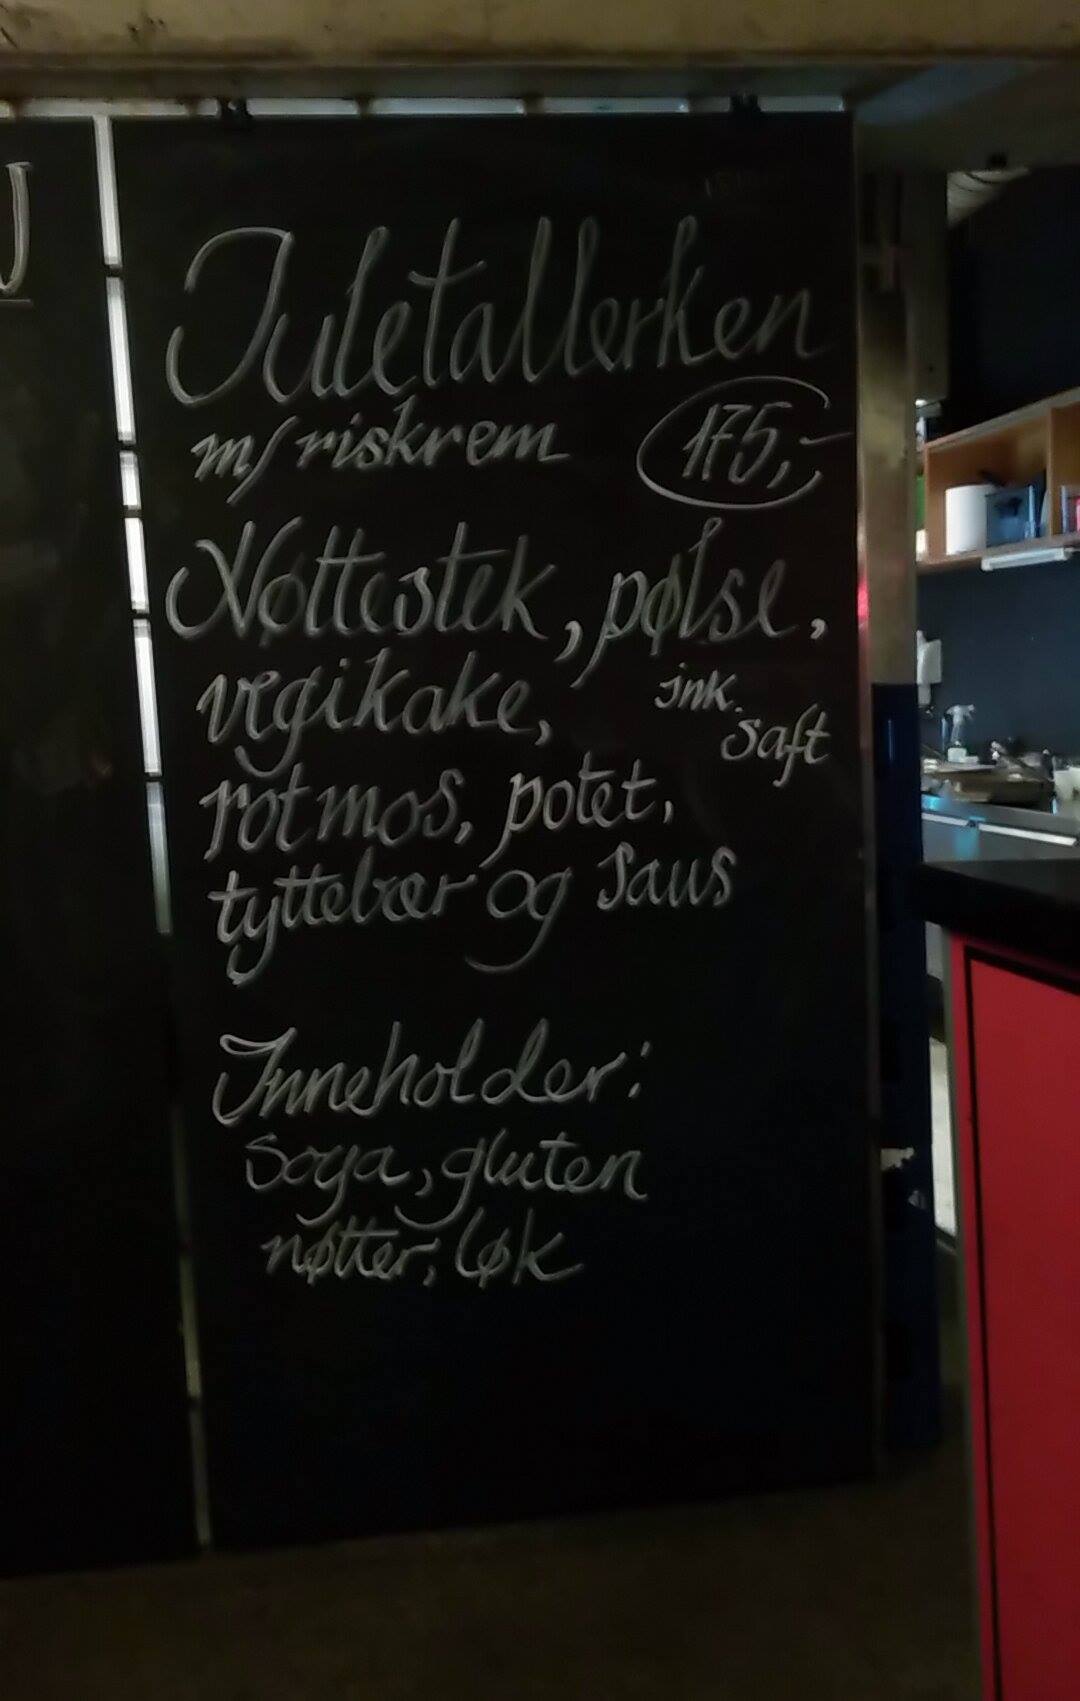 Juletallerken
m/riskrem 175,-
Nøttestek, pølse,
vegikake, ink.
saft
rotmos, potet,
tyttebær og saus
Inneholder:
Soya, gluten
nøtter, løk